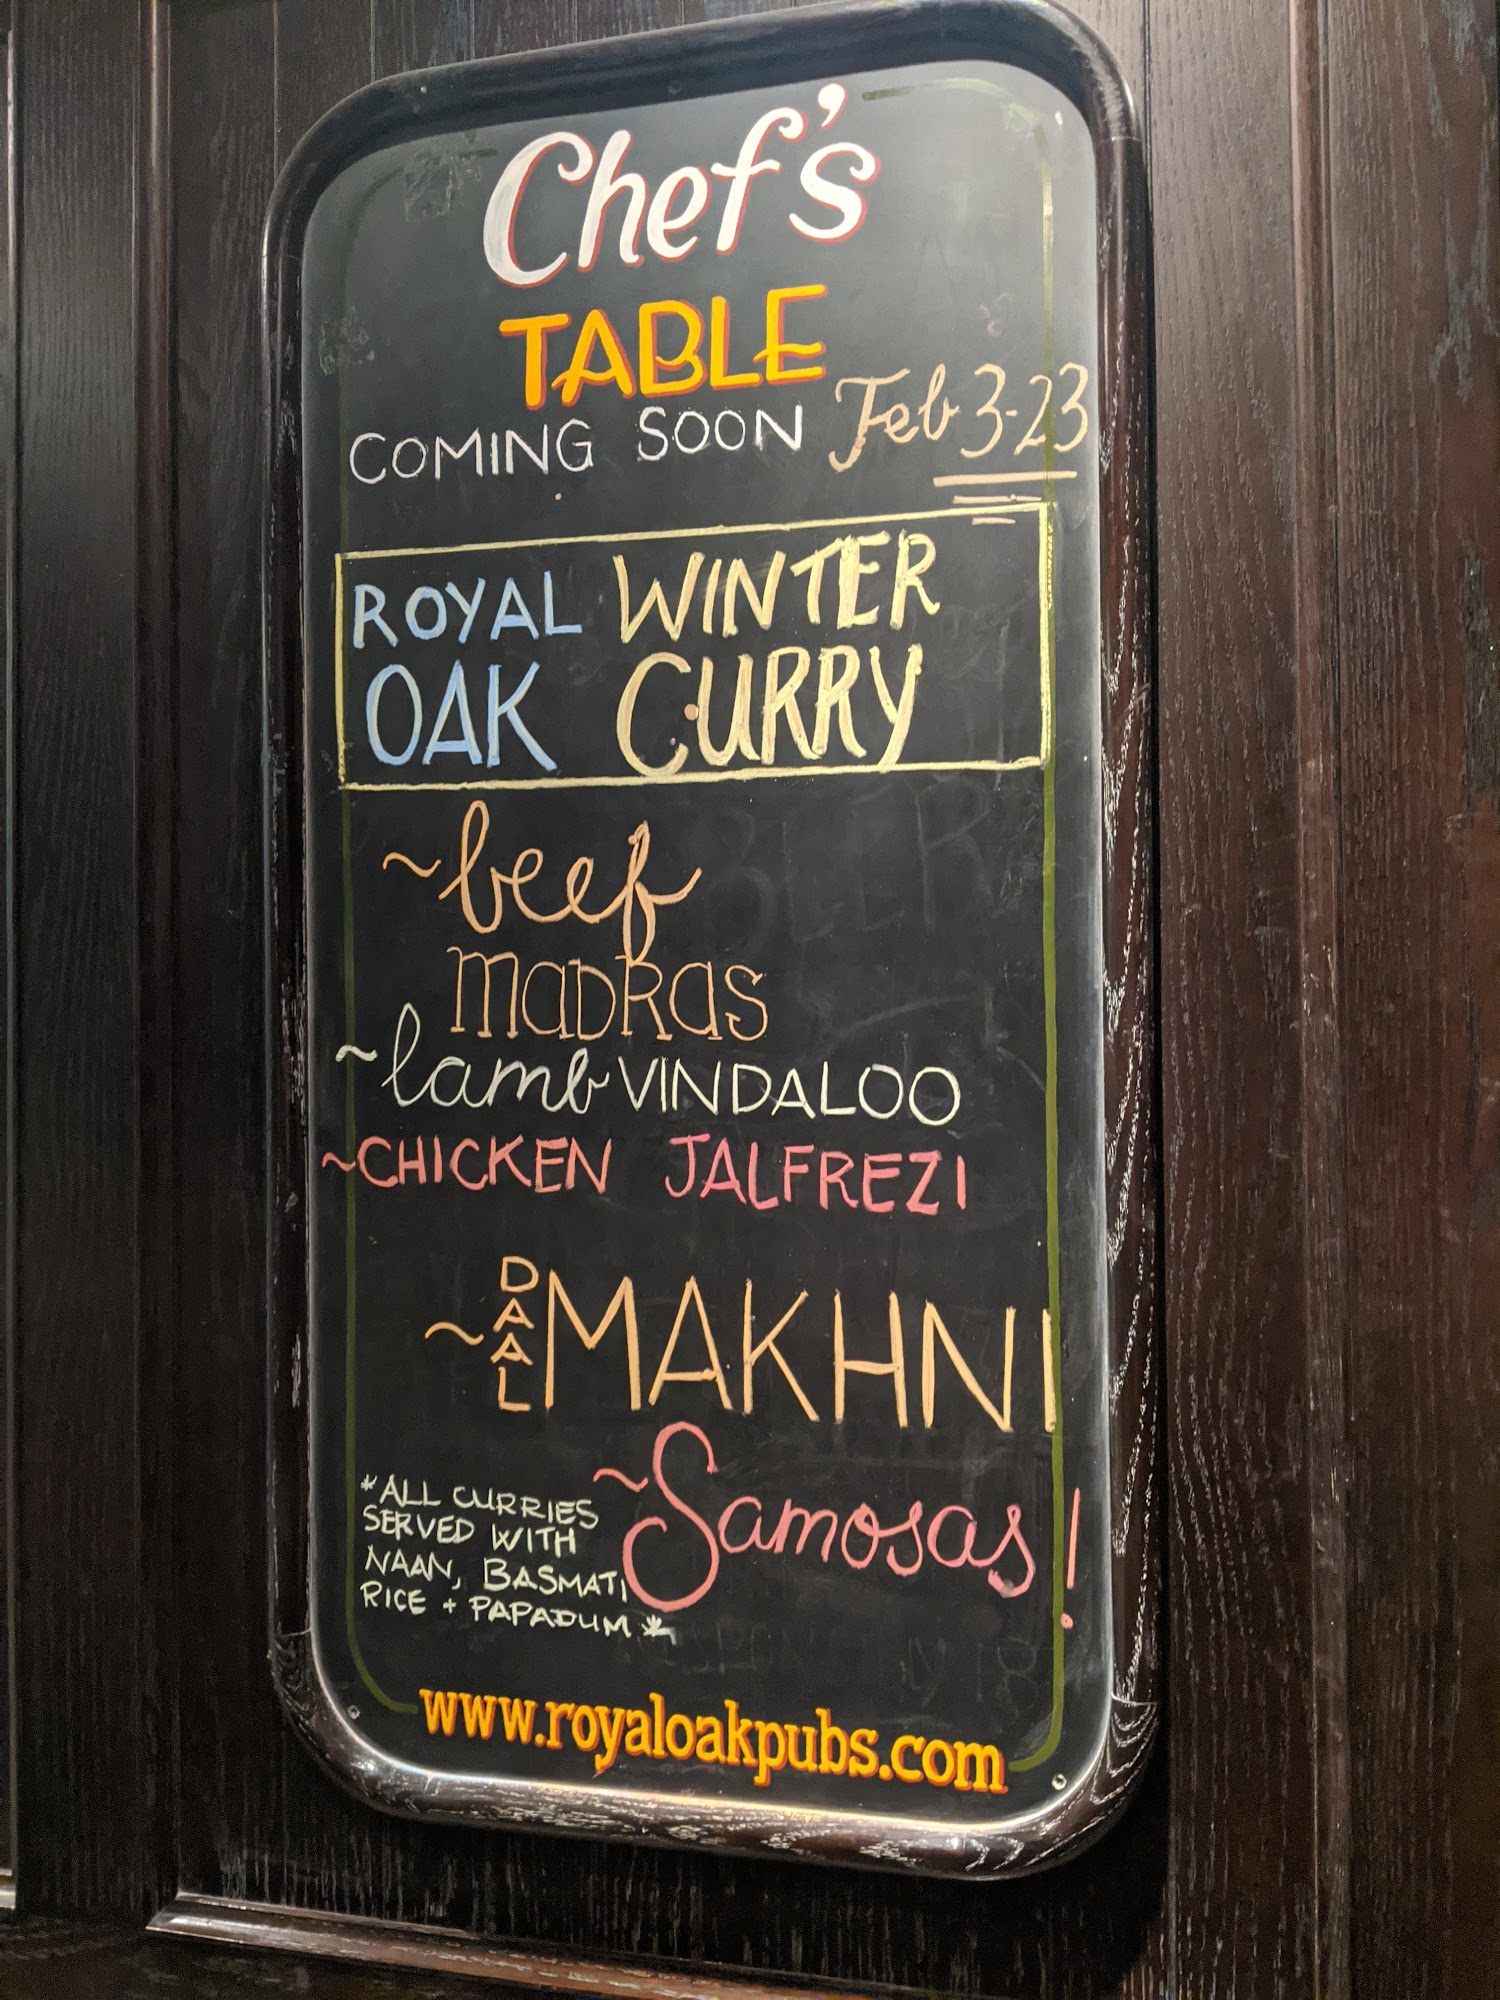 Chef's
TABLE
COMING SOON Feb 3-23
ROYAL WINTER
OAK CURRY
~beef
MADRAS
~lamb VINDALOO
~CHICKEN JALFREZI
~DAAL MAKHNI
~Samosas!
*ALL CURRIES
SERVED WITH
NAAN, BASMATI
RICE + PAPADUM*
www.royaloakpubs.com